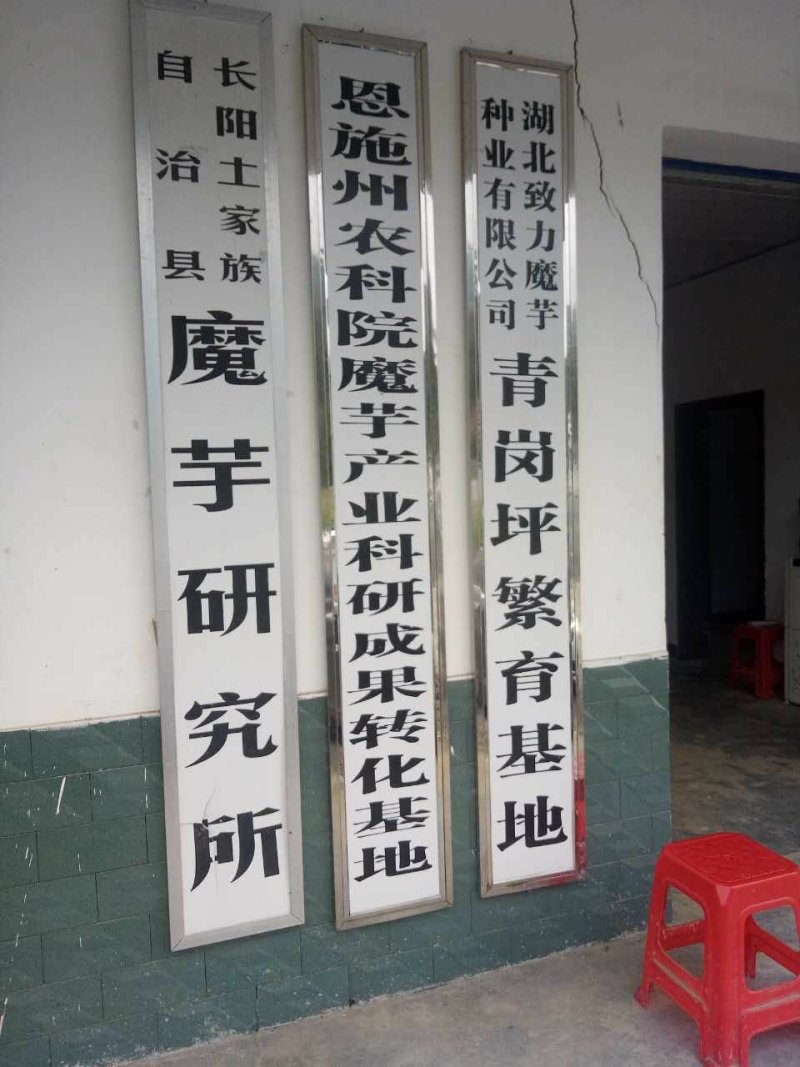 长阳土家族
自治县
魔芋研究所
恩施州农科院魔芋产业科研成果转化基地
湖北致力魔芋
种业有限公司
青岗坪繁育基地